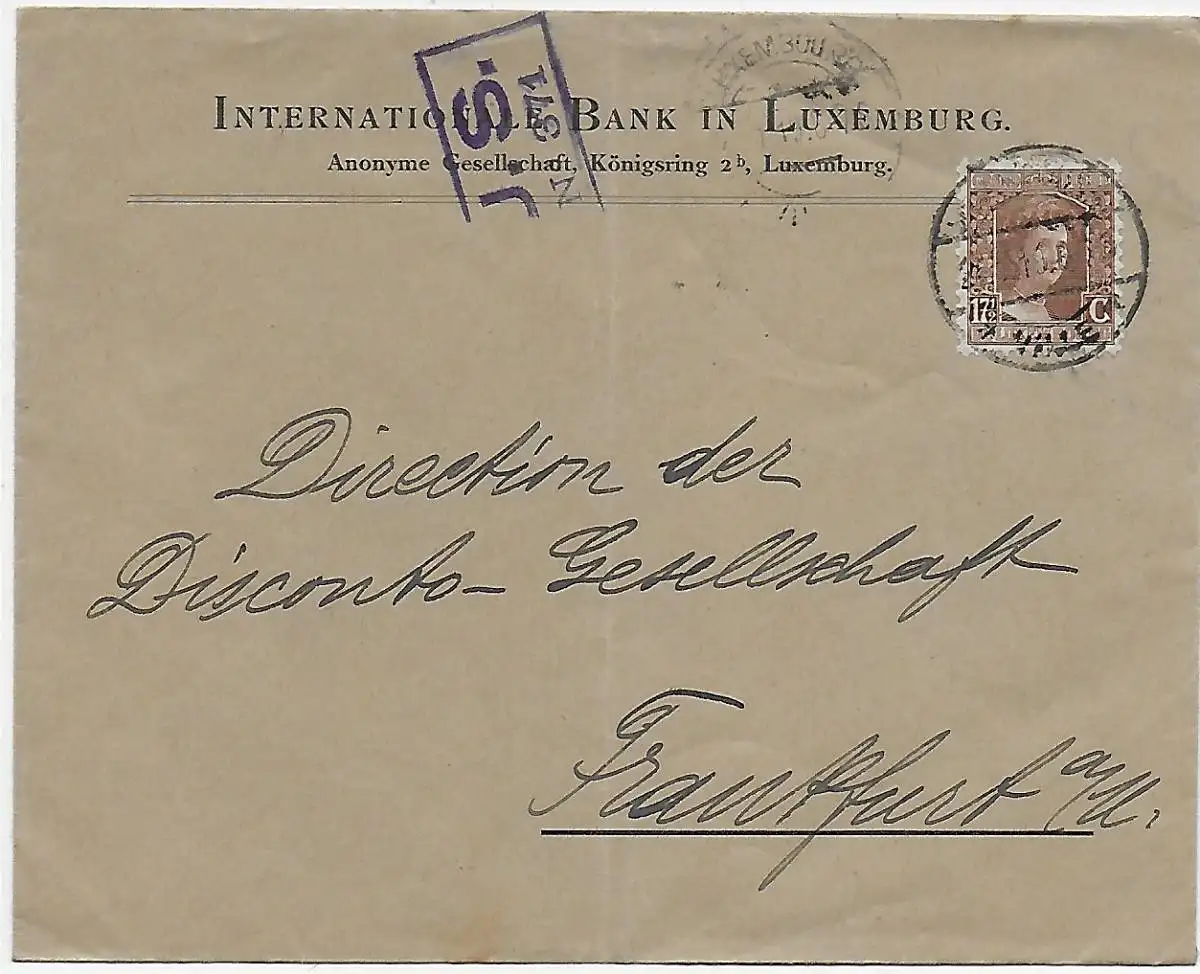 INTERNATIONALE BANK IN LUXEMBURG.
Anonyme Gesellschaft, Königsring 2b, Luxemburg.
17½ C
Direction der
Disconto-Gesellschaft
Frankfurt a/M.